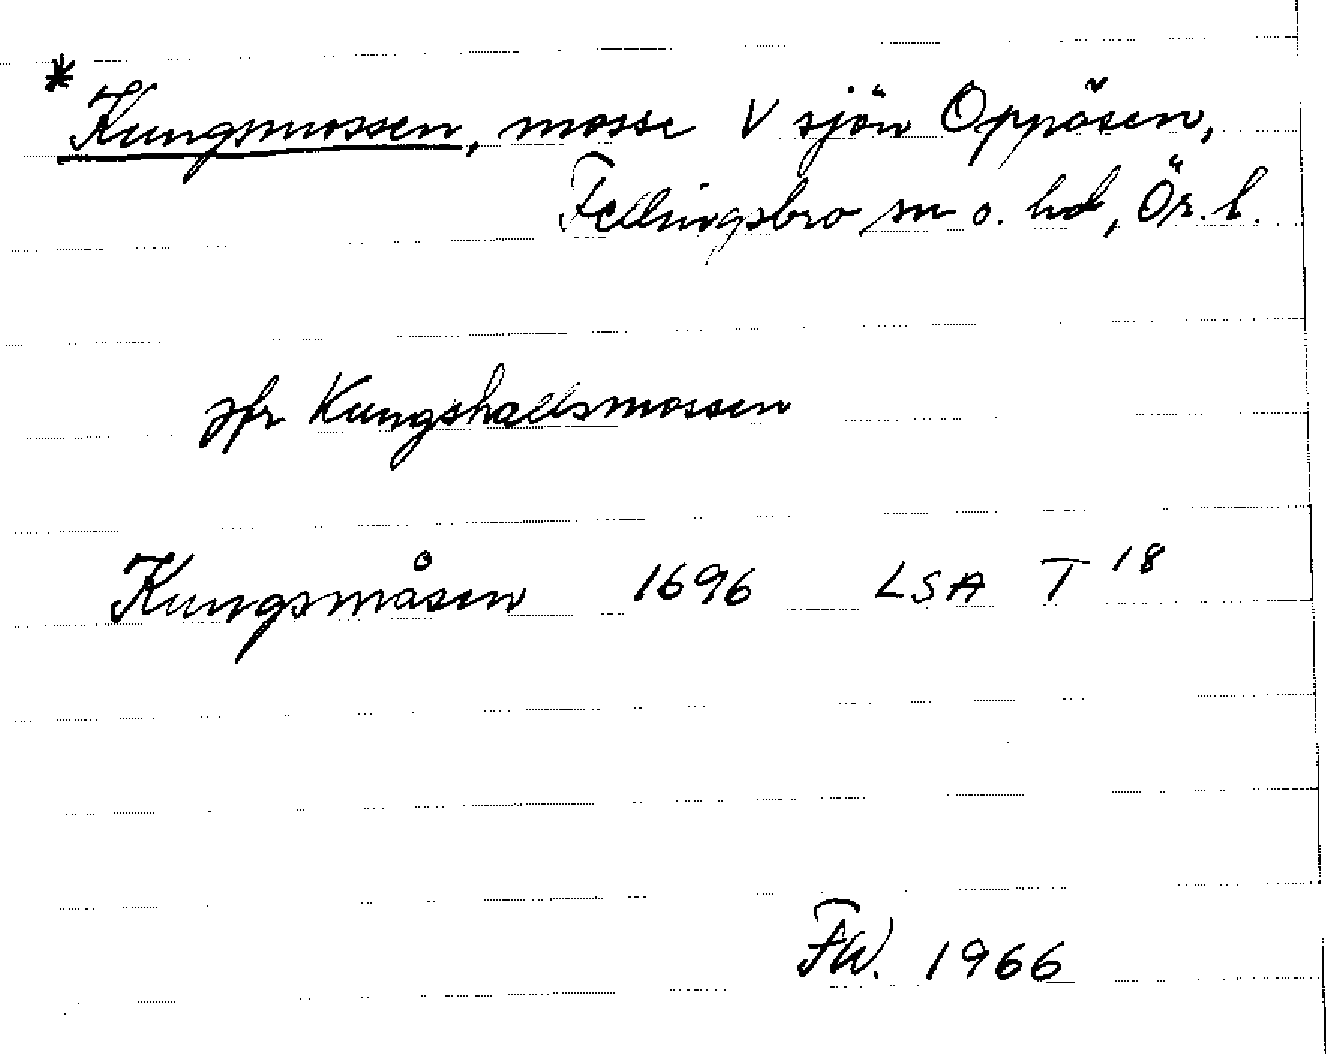 *
Kungsmossen, mosse V sjön Oppåsen,
Fellingsbro sn o. hd, Ör. l.
jfr Kungshallsmossen
Kungsmåsen 1696 LSA T 18
FW. 1966